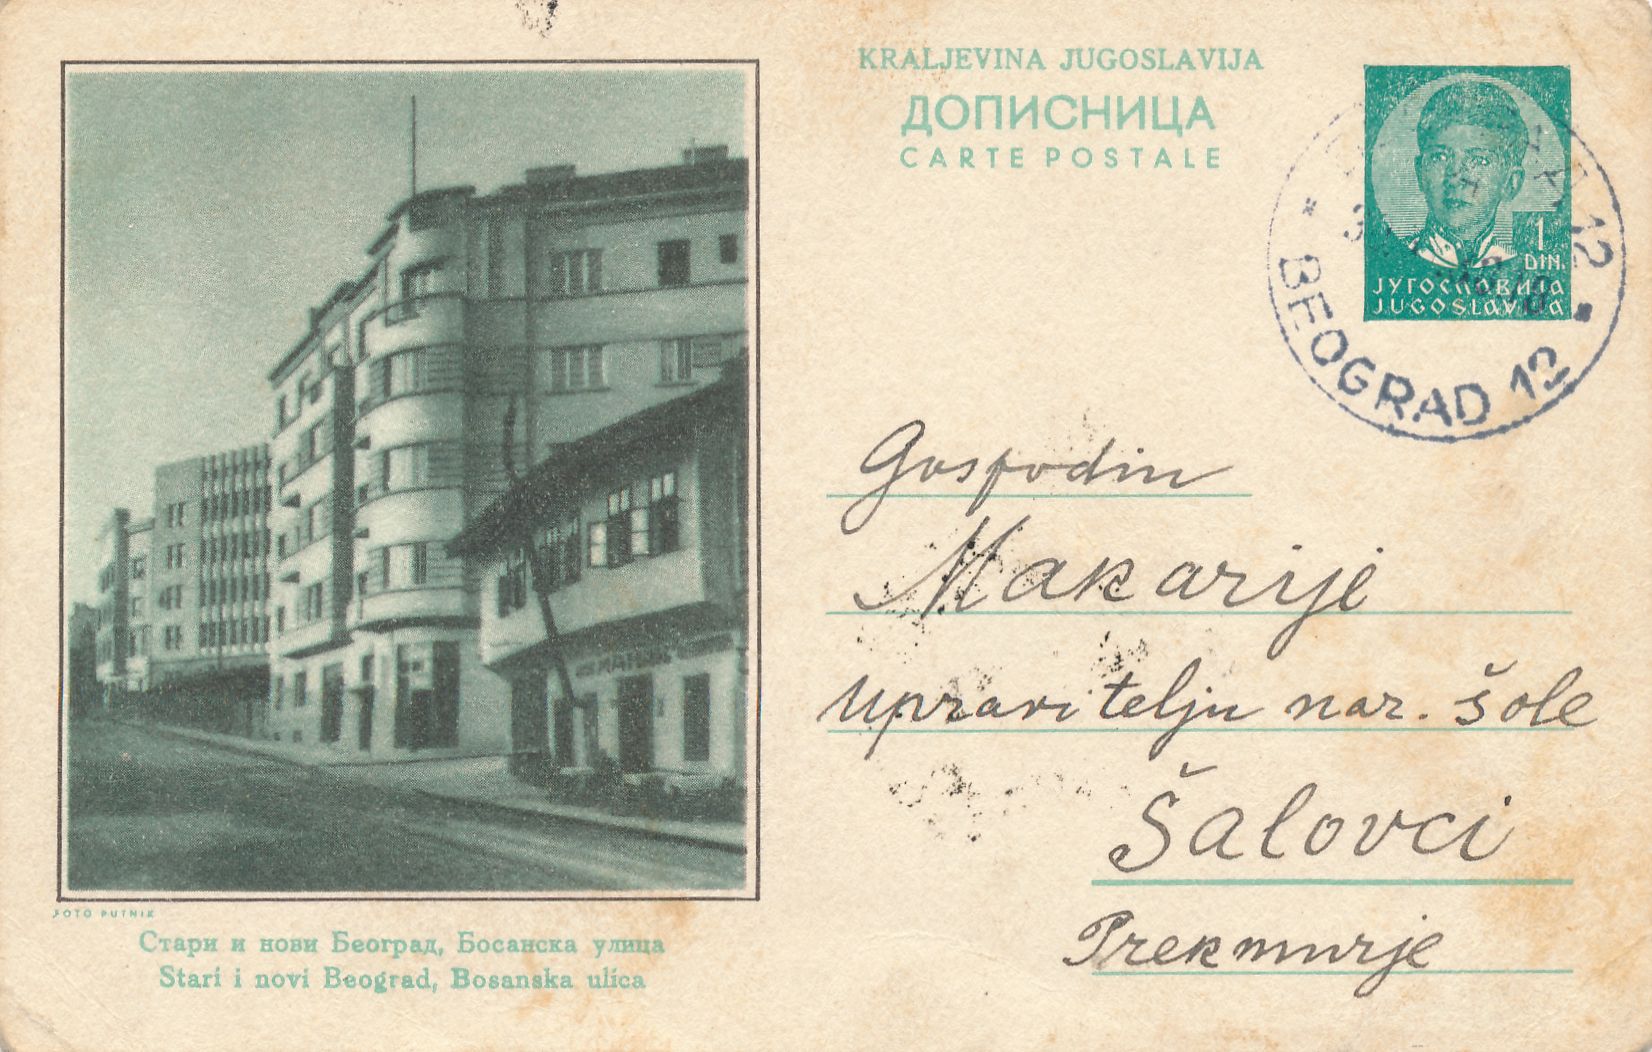 KRALJEVINA JUGOSLAVIJA
ДОПИСНИЦА
CARTE POSTALE
1
DIN.
ЈУГОСЛАВИЈА
JUGOSLAVIJA
12
BEOGRAD 12
Gospodin
Makarije
upravitelju nar. šole
Šalovci
Prekmurje
FOTO PUTNIK
Стари и нови Београд, Босанска улица
Stari i novi Beograd, Bosanska ulica